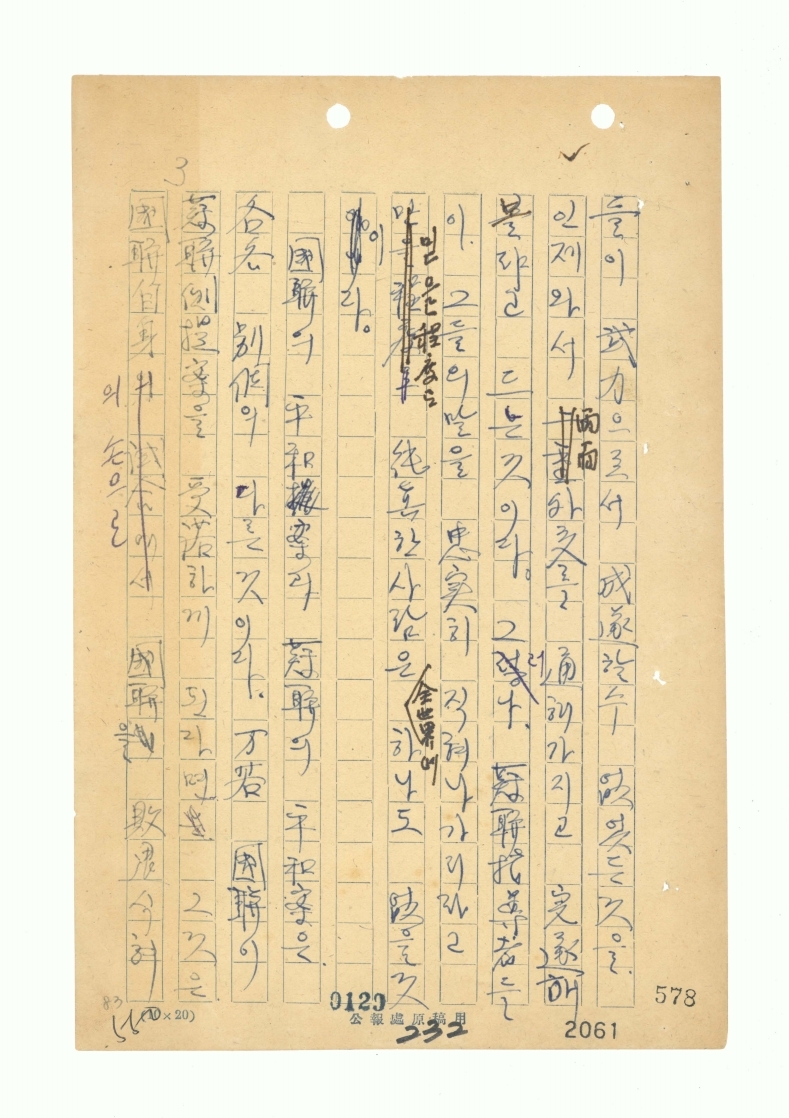 들이 武力으로서 成遂할수 없었든것을.
인제와서 兩面外交를 通해가지고 完遂해
볼랴고 드는것이다. 그러나. 蘇聯指導者들
이. 그들의말을 忠実히 직혀나가리라고
믿을程度로 純真한사람은 全世界에 하나도 없을것
이다.
國聯의 平和案과 蘇聯의 平和案은.
各各 別個의 다른것이다. 万若 國聯이
蘇聯側提案을 受諾하게 된다면 그것은
國聯自身의 손으로 國聯을
3
83
55
(10×20)
0120
公報處原稿用
232
2061
578